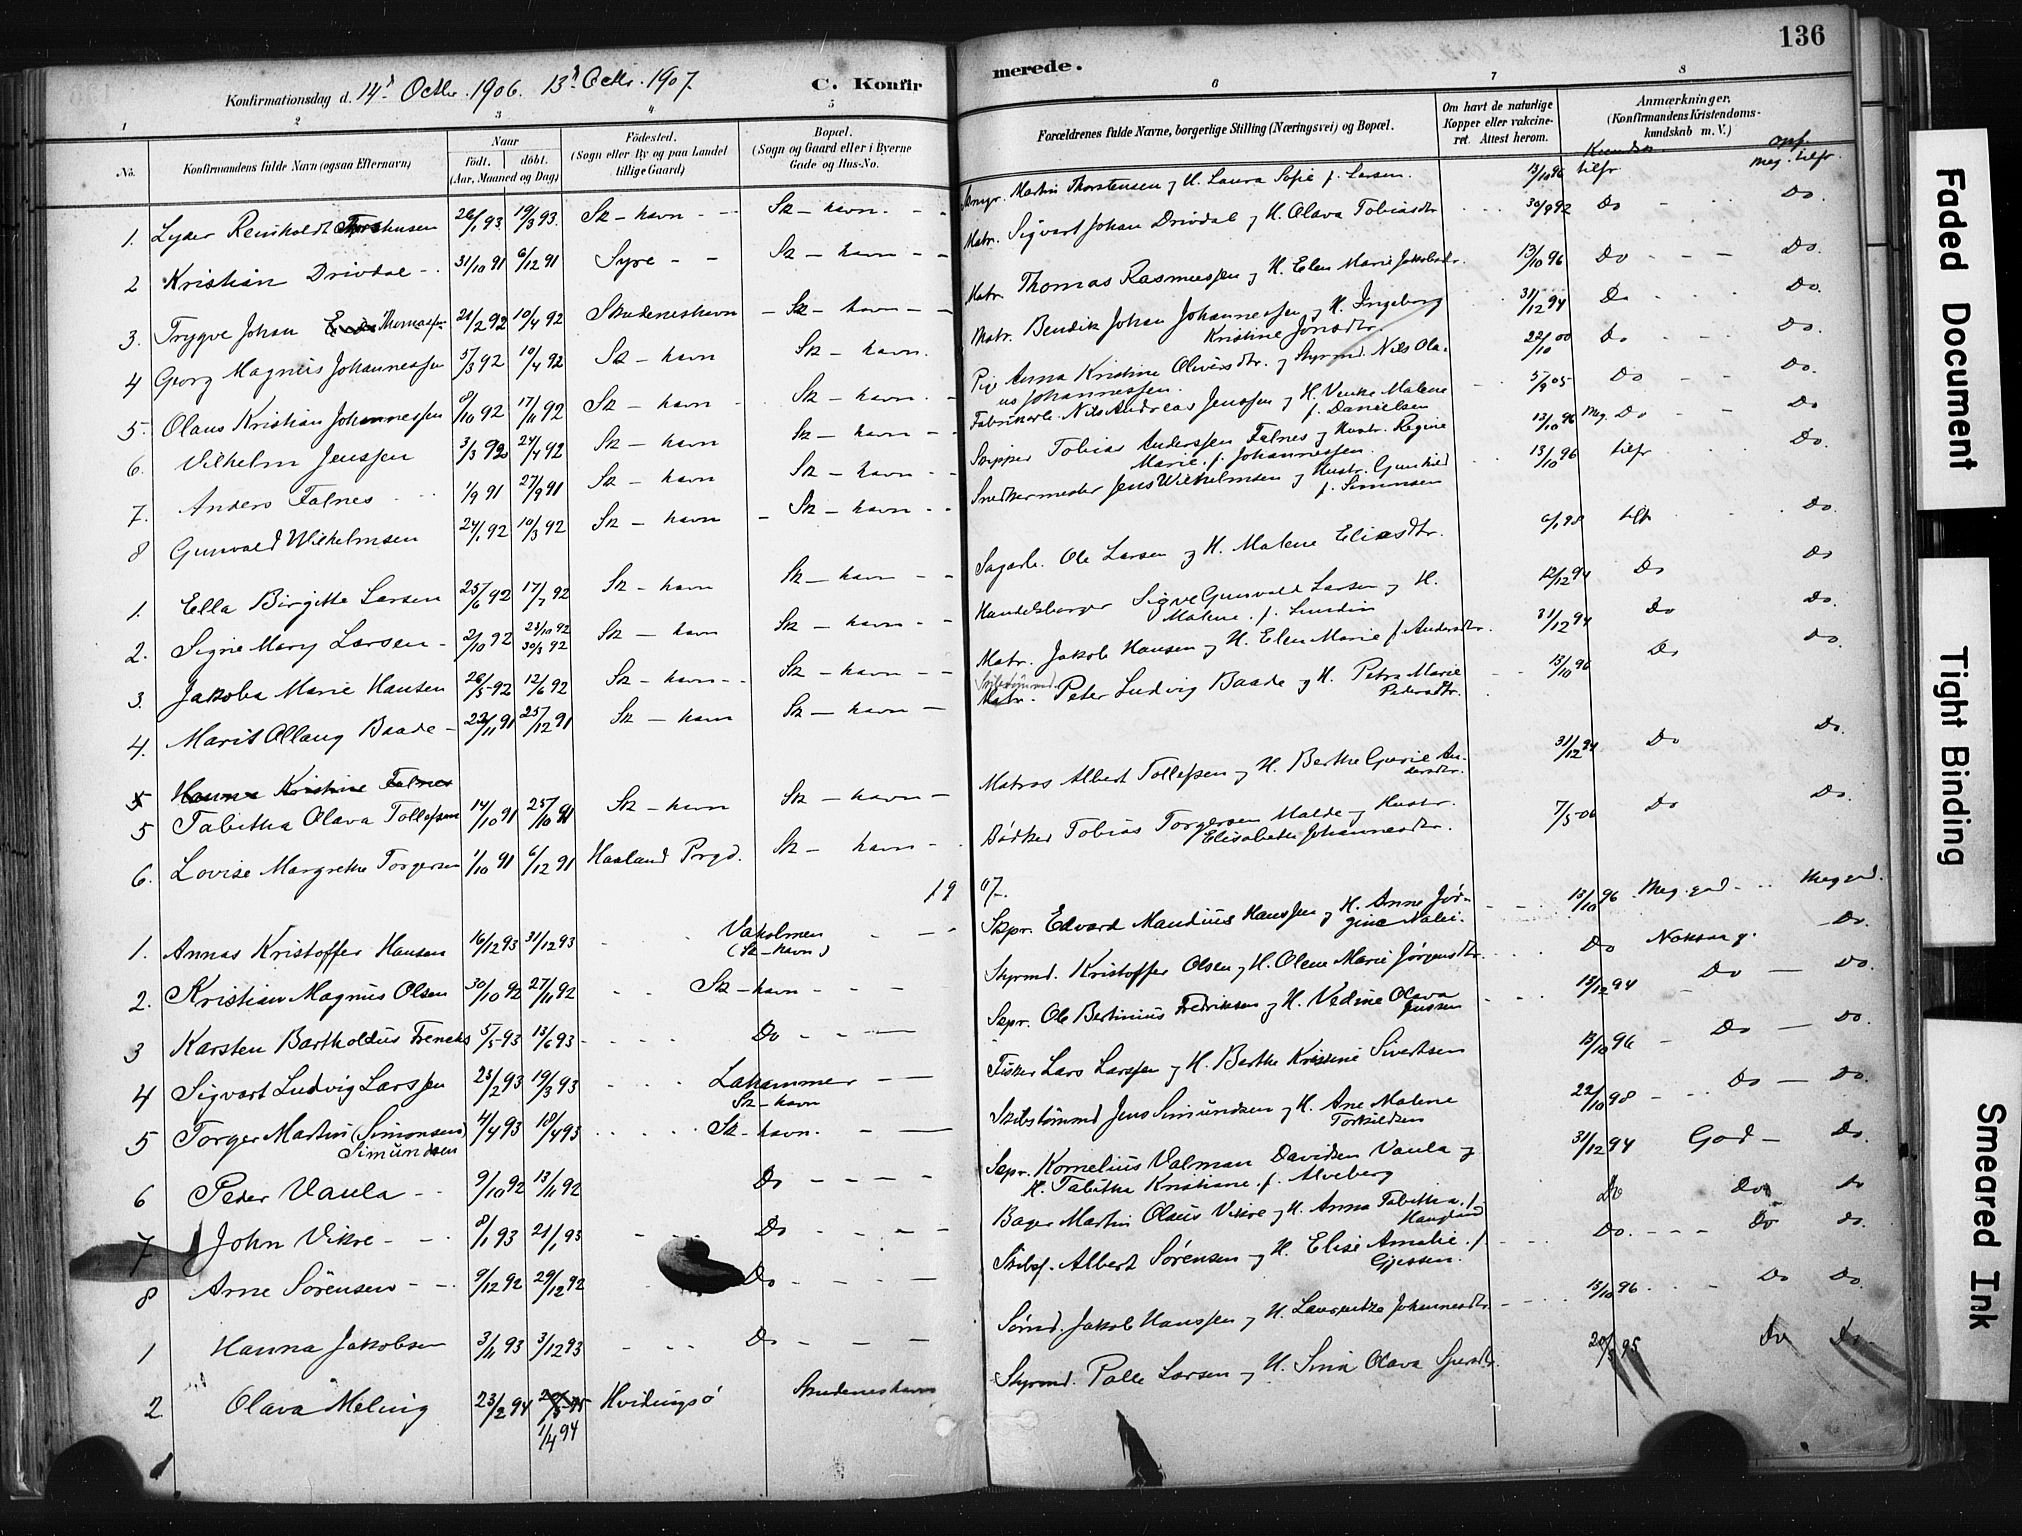 136
Konfirmationsdag d. 14d Octbr. 1906. 13d Octbr. 1907.
C. Konfirmerede.
1 2 3 4 5 6 7 8
No.
Konfirmandens fulde Navn (ogsaa Efternavn)
Naar
födt. döbt.
(Aar, Maaned og Dag)
Födested.
(Sogn eller By og paa Landet
tillige Gaard)
Bopæl.
(Sogn og Gaard eller i Byerne
Gade og Hus-No.
Forældrenes fulde Navne, borgerlige Stilling (Næringsvei) og Bopæl.
Om havt de naturlige
Kopper eller vakcine-
ret. Attest herom.
Anmærkninger.
(Konfirmandens Kristendoms-
kundskab m. V.)
1. Lyder Reinholdt 26/1 93 19/3 93. Sk-havn - - Sk-havn - - Martin Thorstensen og H. Laura Sofie f. Larsen. 13/10 96 tilfr meg. tilfr.
2 Kristian Drivdal - 31/10 91 6/12 91 Syre - - Sk-havn - - Matr. Sigvart Johan Drivdal og H. Olava Tobiasdtr 30/9 92 Do Do.
3. Trygve Johan Thomassen 21/2 92 10/4 92 Skudeneshavn - Sk-havn - - Matr. Thomas Rasmussen og H. Elen Marie Jakobsdtr. 13/10 96 Do - - - Do.
4 Georg Magnus Johannessen 5/3 92 10/4 92 Sk-havn Sk-havn. Matr. Bendik Johan Johannessen og H. Ingeborg
Kristine Jonsdtr. 31/12 94 Do Do.
5. Olaus Kristian Johannessen 8/10 92 17/11 92 Sk-havn Sk-havn. - Pige Anna Kristine Oliversdtr. og Styrmd. Nils Ola-
us Johannessen. 22/10 00 Do Do.
6. Vilhelm Jenssen 3/3 92 24/4 92 Sk-havn Sk-havn - - Fabrikarb. Nils Andreas Jenssen og H. Venke Malene
f. Danielsen 5/9 05 Do - - Do.
7. Anders Falnes 1/9 91 27/9 91 Sk-havn Sk-havn - - Skipper Tobias Anderssen Falnes og Hustr. Regine
Marie f. Johannessen. 13/10 96 Meg. Do - - Do
8 Gunvald Wilhelmsen 24/1 92 10/3 92 Sk-havn - Sk-havn - - Snedkermester Jens Wilhelmsen og Hustr. Gunhild
f. Simonsen 13/10 96 tilfr Do.
1. Ella Birgitte Larsen 25/6 92 17/7 92 Sk-havn Sk-havn - - Sagarb. Ole Larsen og H. Malene Eliasdtr. 6/1 98 tilfr Do.
2. Signe Mary Larsen - 2/10 92 23/10 92
30/3 92 Sk-havn Sk-havn - - Handelsborger Sigve Gunvald Larsen og H.
Malene f. Lundin 12/12 94 Do Do
3. Jakoba Marie Hansen 26/5 92 12/6 92 Sk-havn - - Sk-havn - - Matr. Jakob Hansen og H. Elen Marie f. Andersdtr. 31/12 94 Do Do.
4. Marit Ollaug Baade - 22/11 91 25/12 91 Sk-havn Sk-havn - Matr. Peter Ludvig Baade og H. Petra Marie
Pedersdtr. 13/10 96 Do Do.
5 Hanna Kristine Falnes
5 Tabitha Olava Tollefsen 14/10 91 25/10 91 Sk-havn Sk-havn - Matros Albert Tollefsen og H. Berthe Gurie An-
dersdtr. 31/12 94 Do Do.
6. Lovise Margrethe Torgersen 1/10 91 6/12 91 Haaland Prgd. Sk-havn - Bødker Tobias Torgersen Malde og Hustr.
Elisabeth Johannesdtr. 7/5-06 Do Do.
1907.
1. Annas Kristoffer Hansen 16/12 93 31/12 93 Vaholmen
(Sk-havn) - - - Skpr. Edvard Mandius Hanssen og H. Anne Jør-
gine Malie. 13/10 96 Meg. god - .. Meg god.
2. Kristian Magnus Olsen 30/10 92 27/11 92 Sk-havn - - - Styrmd. Kristoffer Olsen og H. Olene Marie Jørgensdtr. Do Do.
3 Karsten Bartholdus 5/5-93 13/6 93 Do - - - Skpr. Ole Bertinius Fredriksen og H. Vedine Olava
Jenssen 13/12 94 Do - Do.
4 Sigvart Ludvig Larssen 23/2 93 19/3 93 Lahammer - -
Sk-havn Fisker Lars Larssen og H. Berthe Kristine Sivertsen 13/10 96 - Do - Do.
5 Torger Martin (Simonsen)
Simundsen 4/4 93 18/4 93 Sk-havn. - - Jens Simundsen og H. Ane Malene
Torkildsen 22/10 98 Do - Do.
6 Peder Vaula - - 9/10 92 13/11 92 Do - - - - Skpr. Kornelius Valman Davidsen Vaula og
H. Tabitha Kristiane f. Alveberg 31/12 94 God - Do.
7 John Vikre - - 8/1 93 21/1 93 Do - - - Bager Martin Olaus Vikre og H. Anna Tabitha f.
Do Do Do
8 Arne Sörensen - - 9/12 92 29/12 92 Do - - - - Skibsf. Albert Sørensen og H. Elise Amalie f.
Gjessen. Do. - - - Do do.
1 Hanna Jakobsen 3/11 93 3/12 93 Do - - - Sömd. Jakob Hanssen og H. Laurentze Johannesdtr. 13/10 96 Do Do.
2 Olava Meling 23/2 94 1/4 94 Hvidingsö Skudeneshavn Styrmd. Palle Larsen og H. Sina Olava 20/5 95 Do Do
Faded Document
Tight Binding
Smeared Ink